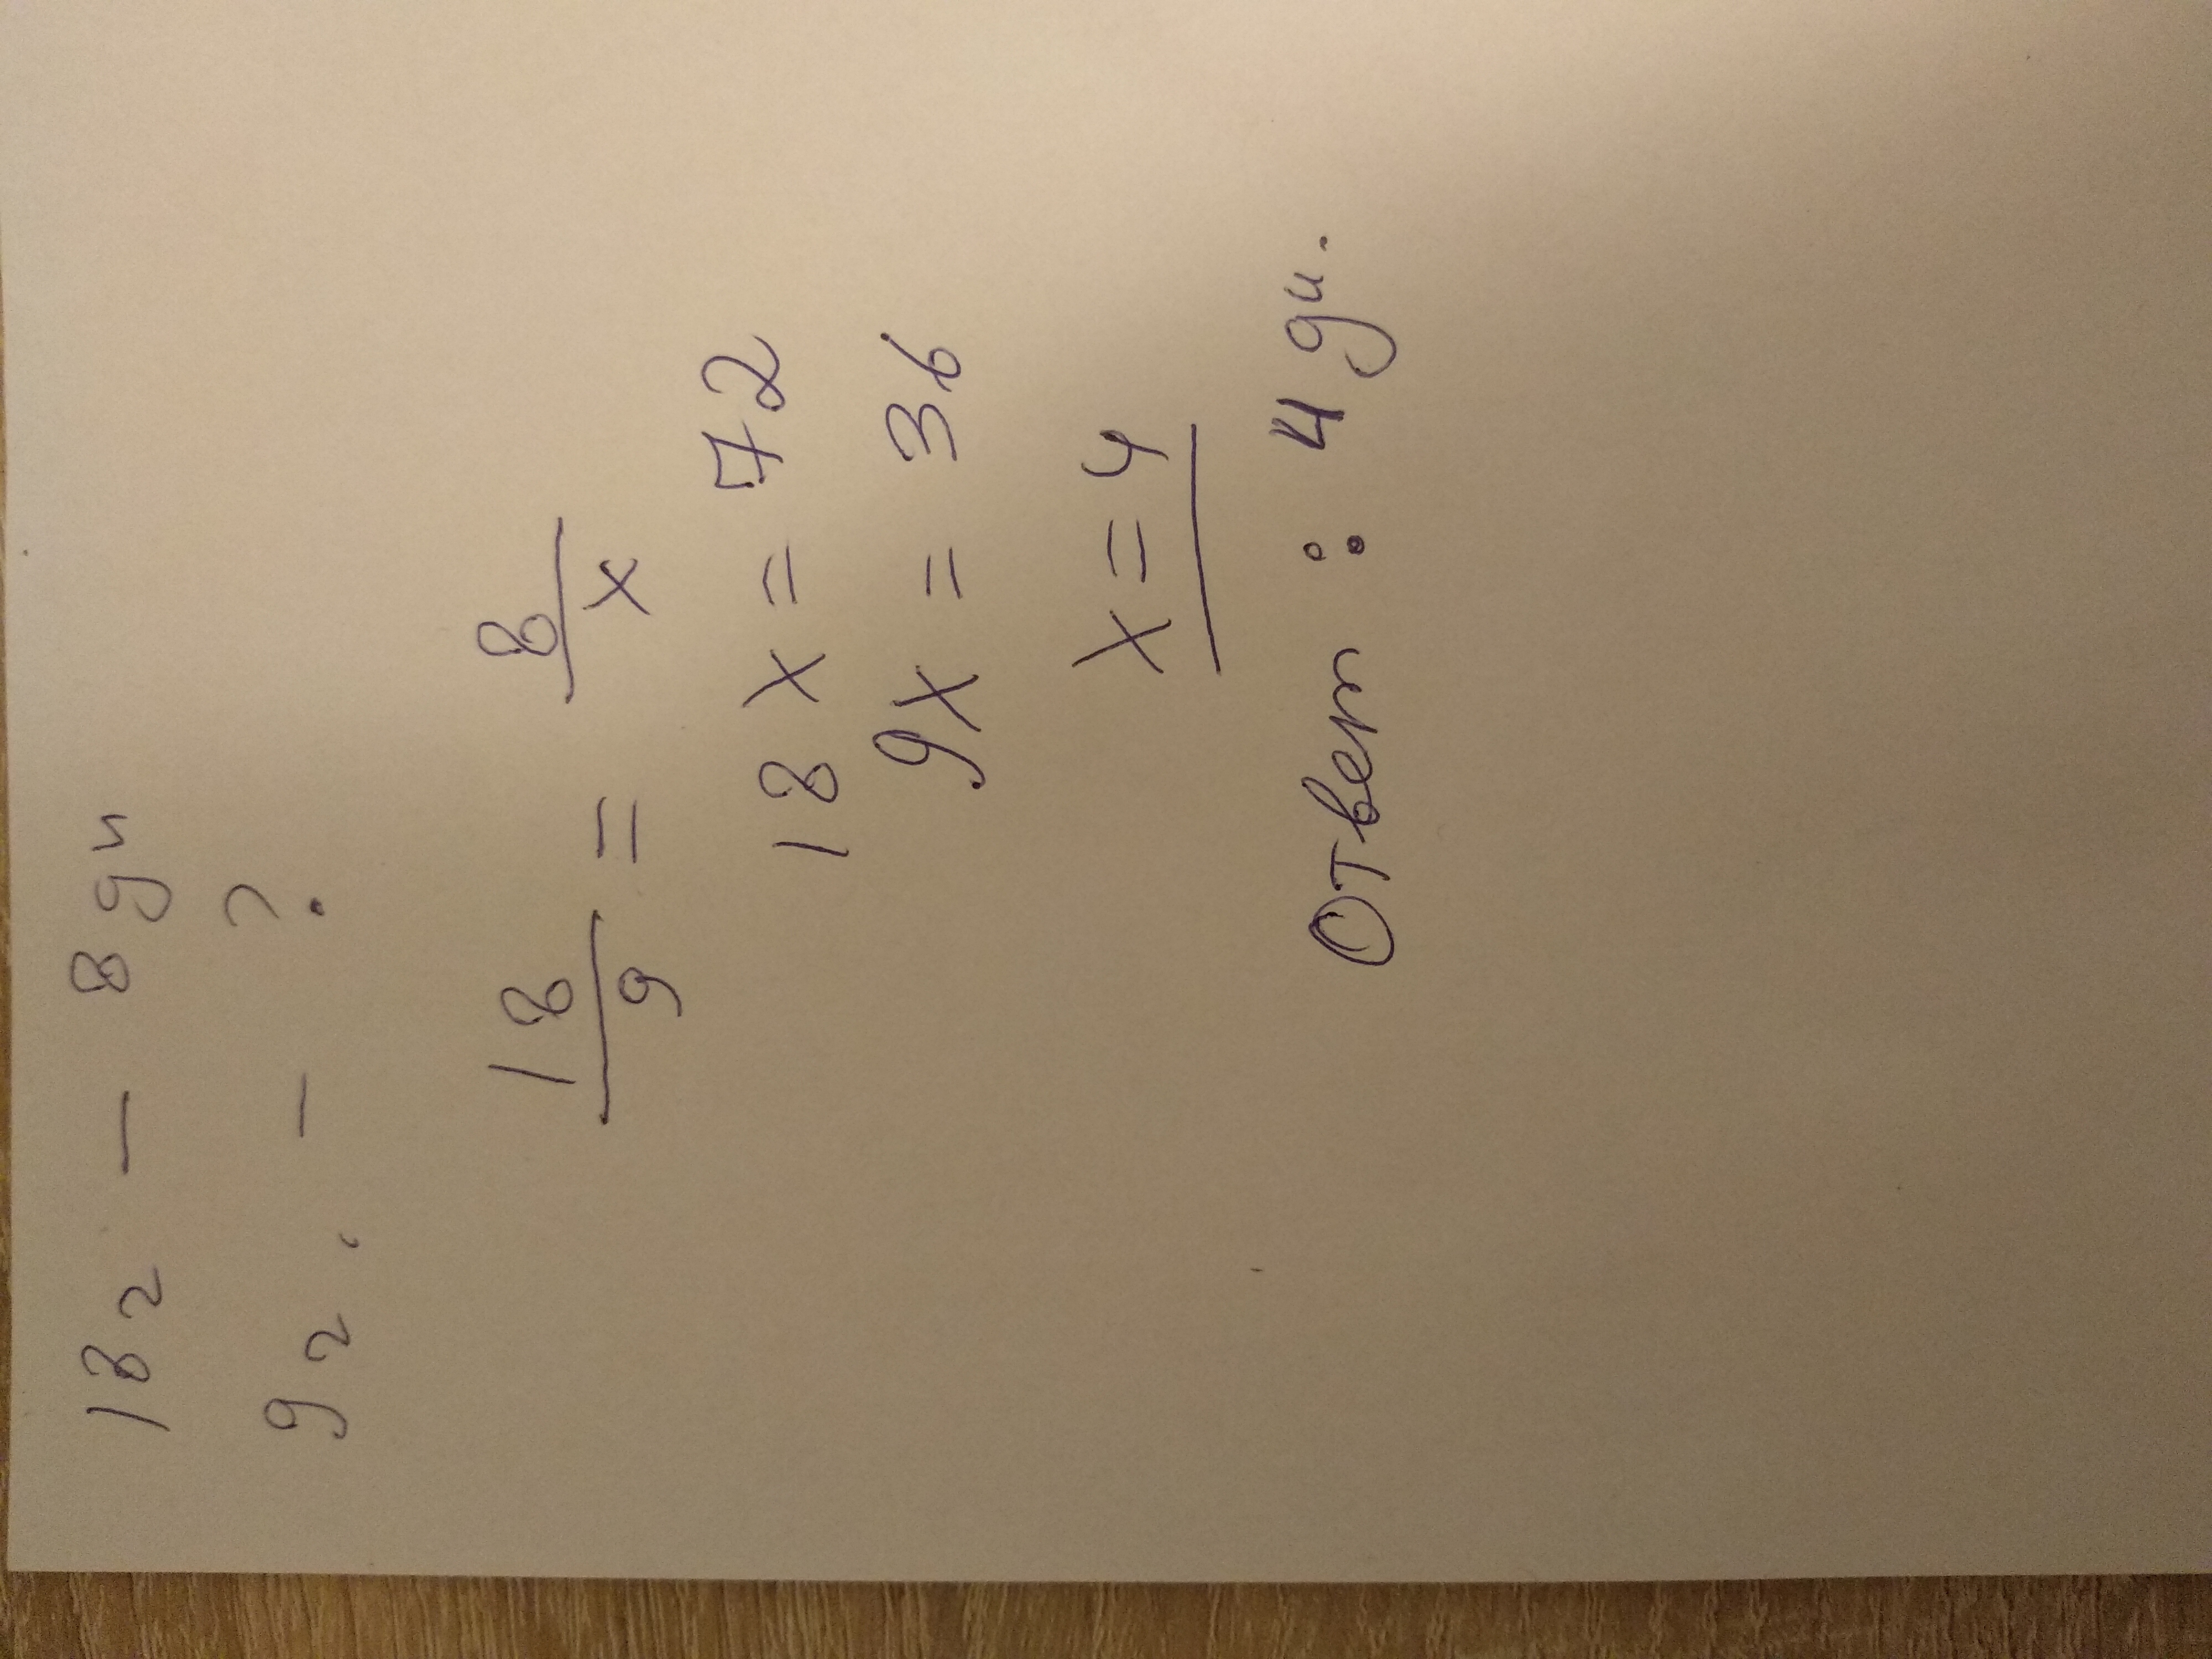 18 г — 8 дн
9 г. - ?
18/9 = 8/x
18x = 72
9x = 36
x = 4
Ответ: 4 дн.